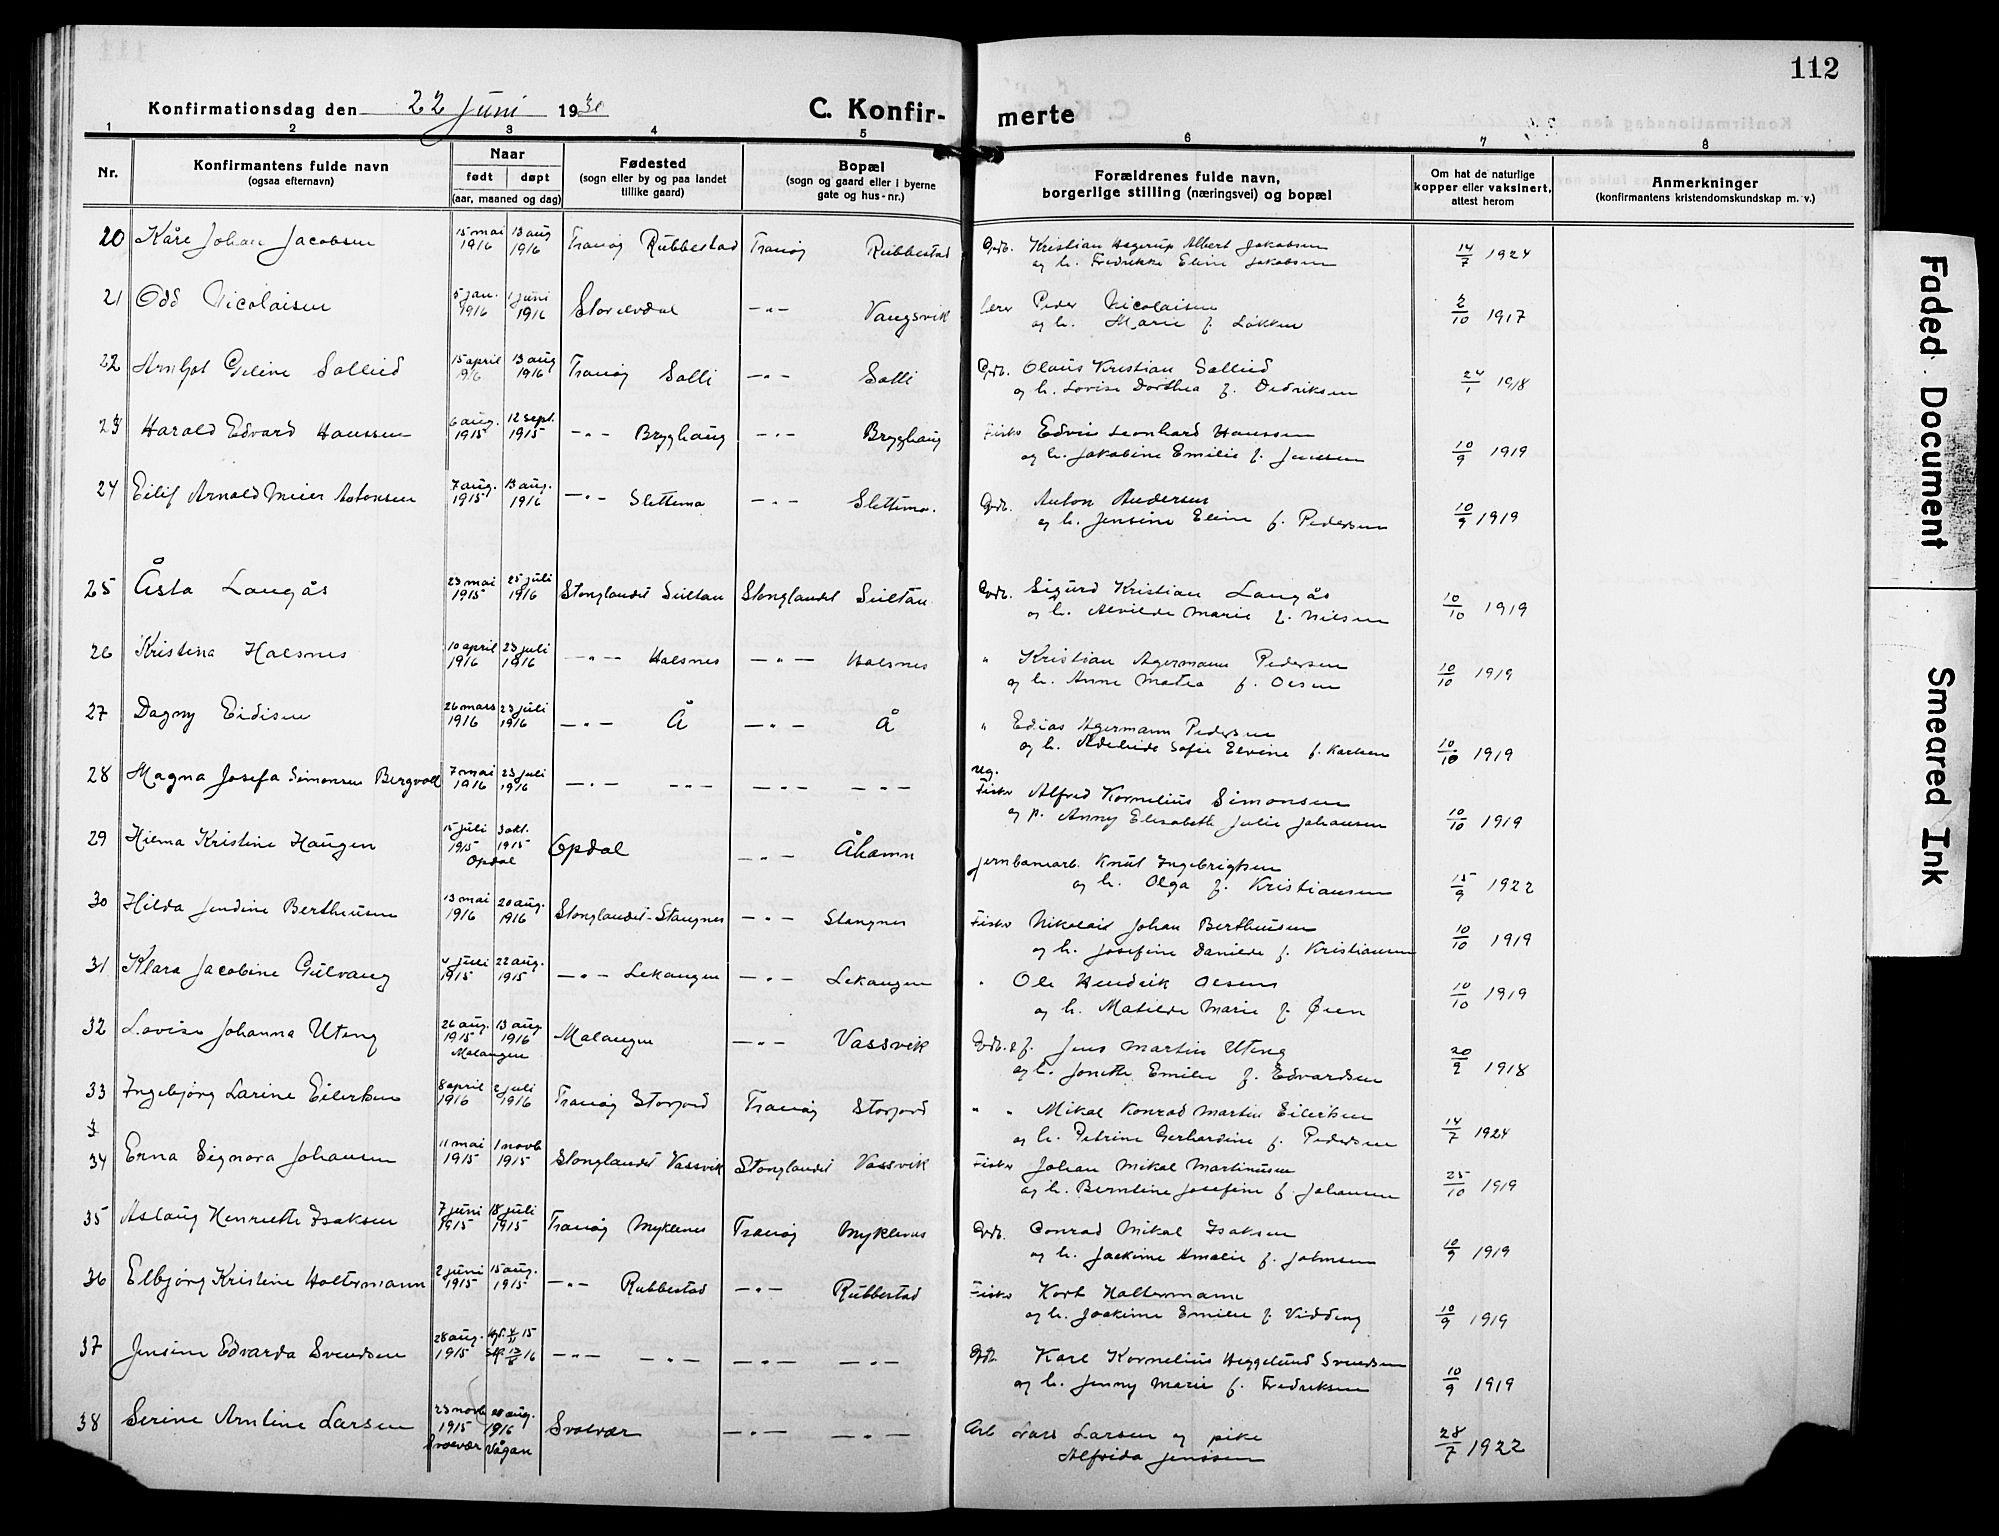 112
Konfirmationsdag den 22 juni 1930
C. Konfirmerte
1 2 3 4 5 6 7 8
Nr.
Konfirmantens fulde navn
(ogsaa efternavn)
Naar
født døpt
(aar, maaned og dag)
Fødested
(sogn eller by og paa landet
tillike gaard)
Bopæl
(sogn og gaard eller i byerne
gate og hus-nr.)
Forældrenes fulde navn,
borgerlige stilling (næringsvei) og bopæl
Om hat de naturlige
kopper eller vaksinert,
attest herom
Anmerkninger
(konfirmantens kristendomskundskap m. v.)
20 Kåre Johan Jacobsen 15 mai 1916 13 aug 1916 Tranøy Rubbestad Tranøy Rubbestad Grdb. Kristian Hagerup Albert Jakobsen 14/7 1924
og h. Fredrikke Eline Jakobsen
21 Odd Nicolaisen 5 jan. 1916 1 juni 1916 Storelvdal —"— Vangsvik Peder Nicolaisen 2/10 1917
og h. Marie f. Løkken
22 Arnljot Geline Sollied 15 april 1916 13 aug 1916 Tranøy Solli —"— Solli Grdb. Olaus Kristian Sollied 24/1 1918
og h. Lovise Dorthea f. Dedriksen
23 Harald Edvard Hanssen 6 aug. 1915 12 sept. 1915 —"— Brygghaug —"— Brygghaug Fisker Edvin Leonhard Hanssen 10/9 1919
og h. Jakobine Emilie f. Jenssen
24 Eilif Arnold Meier Antonsen 7 aug. 1915 13 aug. 1916 —"— Slettemo —"— Slettemo. Grdb. Anton Andersen 10/9 1919
og h. Jensine Eline f. Pedersen
25 Åsta Langås 23 mai 1915 25 juli 1916 Stonglandet Sultan Stonglandet Sultan Grdb. Sigurd Kristian Langås 10/10 1919
og h. Alvilde Marie f. Nilsen
26 Kristina Halsnes 10 april 1916 23 juli 1916 —"— Halsnes —"— Halsnes " Kristian Agermann Pedersen 10/10 1919
og h. Anne Matea f. Olsen
27 Dagny Eidisen 26 mars 1916 23 juli 1916 —"— Å —"— Å " Edias Agermann Pedersen
og h. Adeleide Sofie Elvine f. Karlsen 10/10 1919
28 Magna Josefa Simonsen Bergvoll 7 mai 1916 23 juli 1916 —"— —"— —"— —"— Ug. Fisker Alfred Kornelius Simonsen
og p. Anny Elisabeth Julie Johansen 10/10 1919
29 Hilma Kristine Haugen 15 juli 1915 3 okt. 1915 Opdal Opdal —"— Åhamn Jernbanearb. Knut Ingebrigtsen
og h. Olga f. Kristiansen 15/9 1922
30 Hilda Jendine Bertheusen 13 mai 1916 20 aug. 1916 Stonglandet-Stangnes —"— Stangnes Fisker Nikolai Johan Bertheusen
og h. Josefine Danilde f. Kristiansen 10/10 1919
31 Klara Jacobine Gulvang 4 juli 1915 22 aug. 1915 —"— Lekangen —"— Lekangen " Ole Hendrik Olsen 10/10 1919
og h. Matilde Marie f. Øien
32 Lovise Johanna Uteng 26 aug. 1915 13 aug 1916 Malangen Malangen —"— Vassvik Grdb. & f. Jens Martin Uteng
og h. Jonette Emilie f. Edvardsen 20/9 1918
33 Ingebjørg Larine Eilertsen 8 april 1916 2 juli 1916 Tranøy Storjord Tranøy Storjord " " Mikal Konrad Martin Eilertsen
og h. Petrine Gerhardine f. Pedersen 14/7 1924
34 Erna Signora Johansen 11 mai 1915 1 novb 1915 Stonglandet Vassvik Stonglandet Vassvik Fisker Johan Mikal Martinusen
og h. Berntine Josefine f. Johansen 25/10 1919
35 Aslaug Henriette Isaksen 7 juni 1915 18 juli 1915 Tranøy Myklenes Tranøy Myklenes Grdb. Conrad Mikal Isaksen
og h. Jackine Amalie f. Johnsen 10/9 1919
36 Elbjørg Kristine Holtermann 2 juni 1915 15 aug. 1915 —"— Rubbestad —"— Rubbestad Fisker Kort Holtermann
og h. Joakime Emilie f. Vidding 10/9 1919
37 Jensine Edvarda Svendsen 28 aug. 1915 4/11 15 13/8 16 —"— —"— —"— —"— Grdb. Karl Kornelius Heggelund Svendsen
og h. Jenny Marie f. Fredriksen 10/9 1919
38 Serine Arntine Larsen 23 novb 1915 Svolvær 20 aug. 1916 Vågan Svolvær —"— —"— Arb Lars Larsen og pike
Alfrida Jenssen 28/7 1922
Faded Document
Smeared Ink